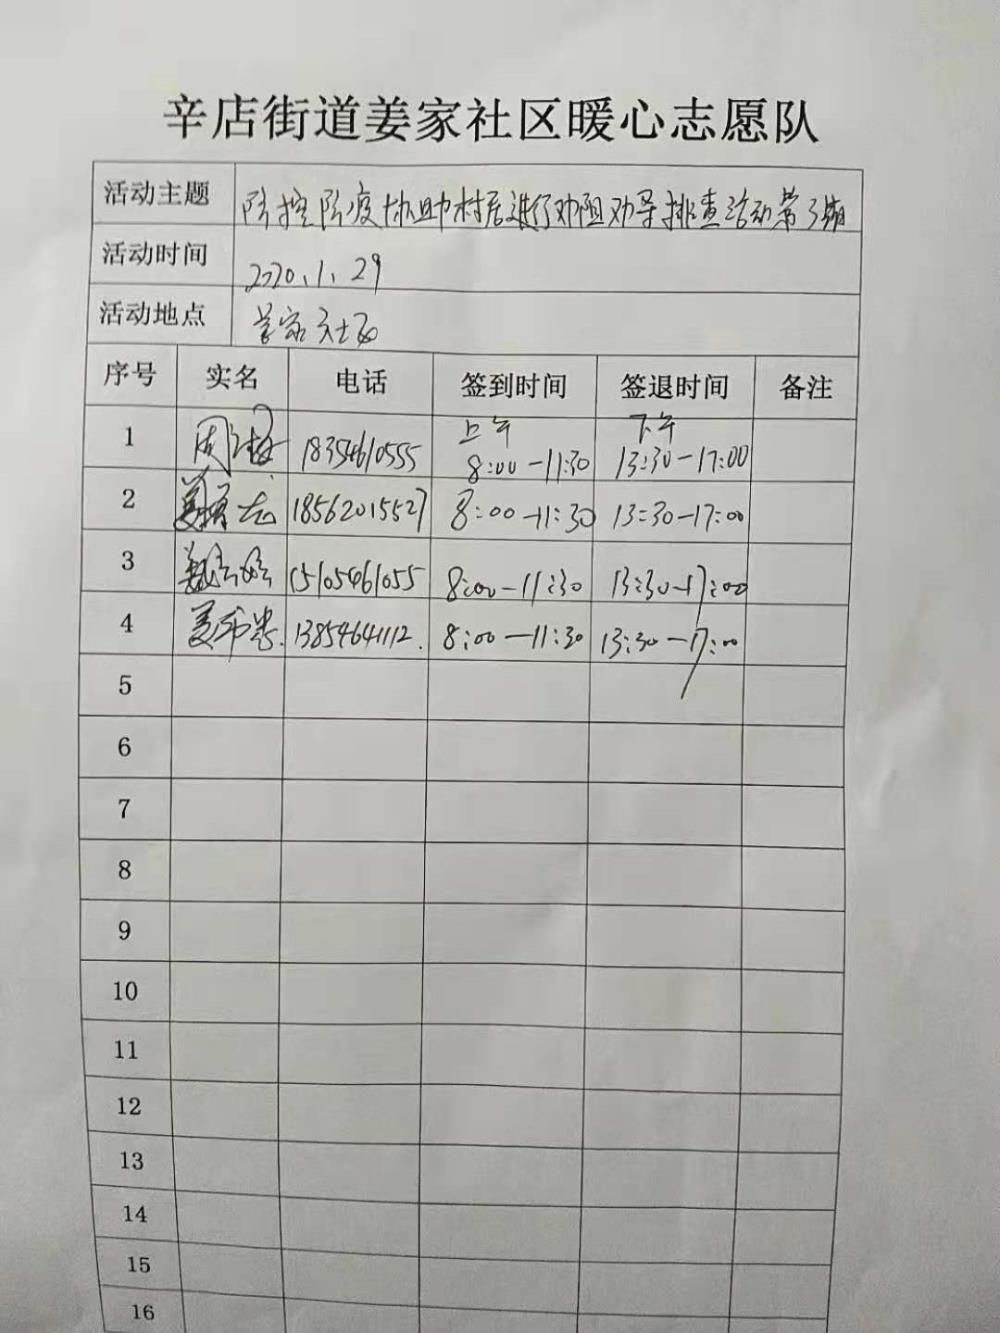 辛店街道姜家社区暖心志愿队
活动主题 防控防疫协助村居进行劝阻劝导排查活动第3期
活动时间 2020.1.29
活动地点 姜家社区
序号 实名 电话 签到时间 签退时间 备注
上午 下午
1 周海 18354610555 8:00-11:30 13:30-17:00
2 18562015527 8:00-11:30 13:30-17:00
3 15105461055 8:00-11:30 13:30-17:00
4 13854641112. 8:00-11:30 13:30-17:00
5
6
7
8
9
10
11
12
13
14
15
16